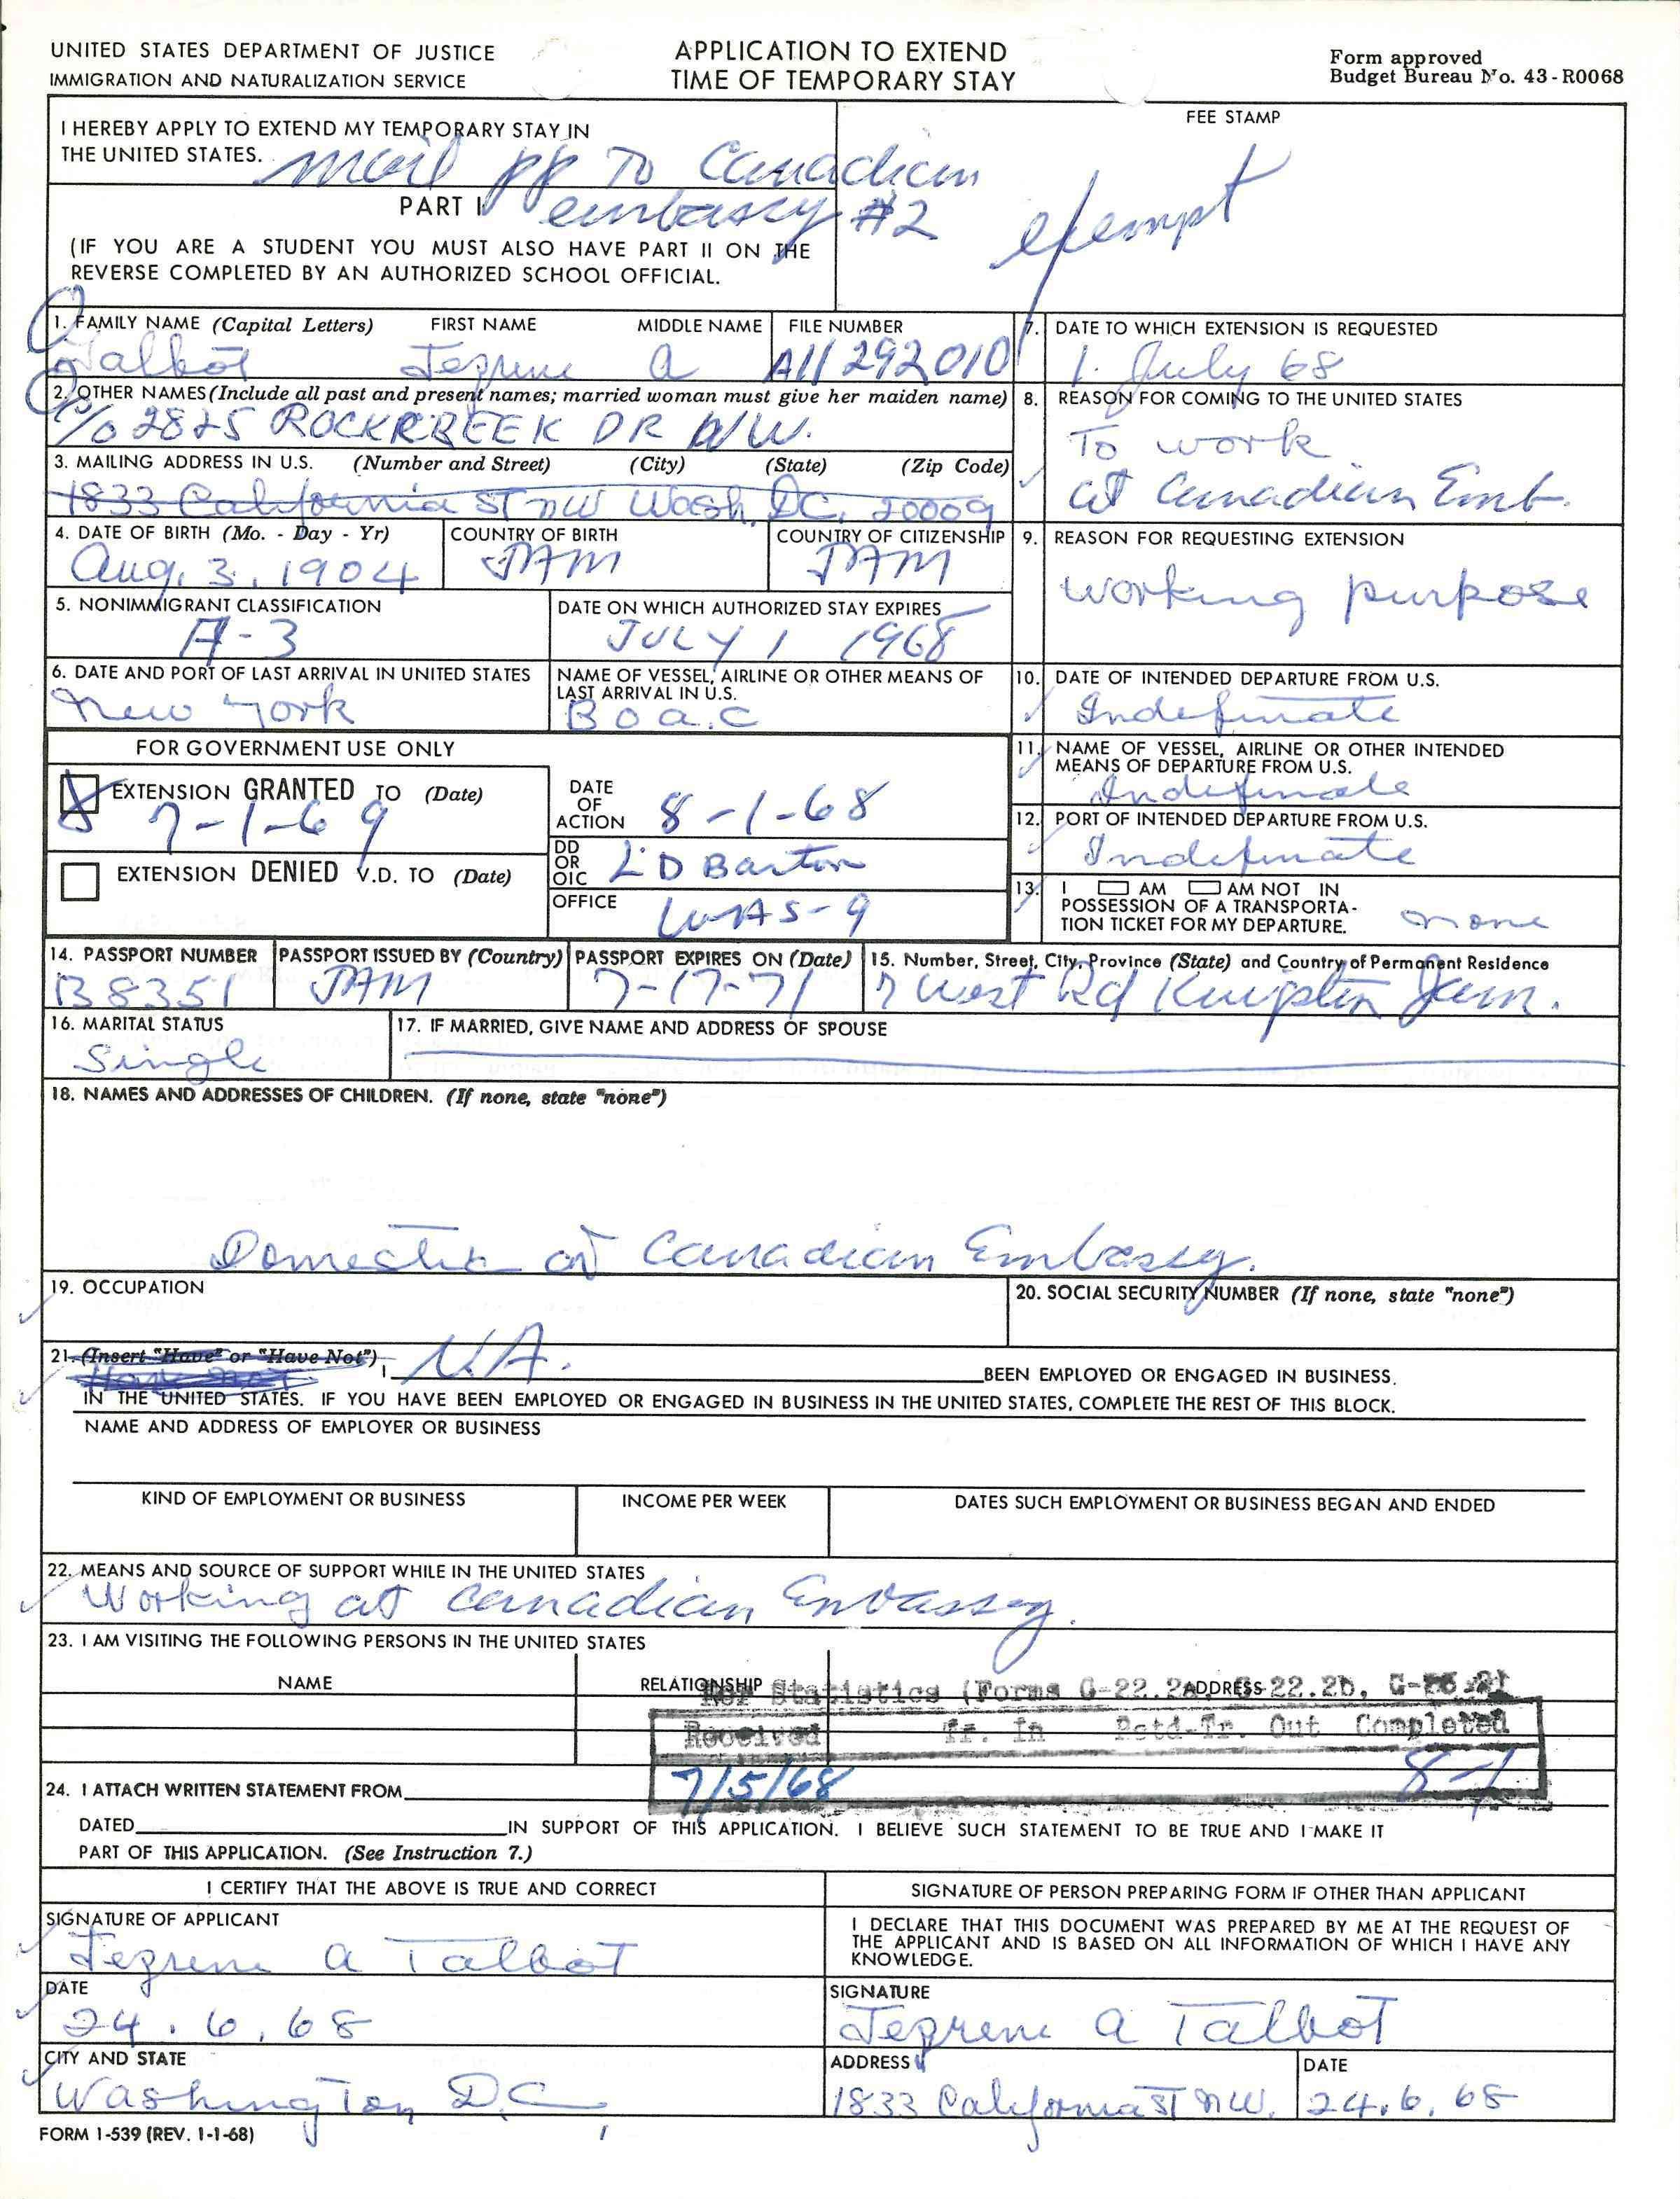 UNITED STATES DEPARTMENT OF JUSTICE
IMMIGRATION AND NATURALIZATION SERVICE
APPLICATION TO EXTEND
TIME OF TEMPORARY STAY
Form approved
Budget Bureau No. 43-R0068
I HEREBY APPLY TO EXTEND MY TEMPORARY STAY IN
THE UNITED STATES.
mail pp To Canadian
embassy #2
PART I
(IF YOU ARE A STUDENT YOU MUST ALSO HAVE PART II ON THE
REVERSE COMPLETED BY AN AUTHORIZED SCHOOL OFFICIAL.
FEE STAMP
exempt
1. FAMILY NAME (Capital Letters) FIRST NAME MIDDLE NAME FILE NUMBER
Talbot a A11 292010
7. DATE TO WHICH EXTENSION IS REQUESTED
1. July 68
2. OTHER NAMES (Include all past and present names; married woman must give her maiden name)
c/o 2825 ROCKCREEK DR NW.
8. REASON FOR COMING TO THE UNITED STATES
To work
at Canadian Emb.
3. MAILING ADDRESS IN U.S. (Number and Street) (City) (State) (Zip Code)
1833 California ST NW Wash. DC. 20009
4. DATE OF BIRTH (Mo. - Day - Yr) COUNTRY OF BIRTH COUNTRY OF CITIZENSHIP
Aug. 3. 1904 JAM JAM
9. REASON FOR REQUESTING EXTENSION
working purpose
5. NONIMMIGRANT CLASSIFICATION DATE ON WHICH AUTHORIZED STAY EXPIRES
A-3 JULY 1 1968
6. DATE AND PORT OF LAST ARRIVAL IN UNITED STATES
New York
NAME OF VESSEL, AIRLINE OR OTHER MEANS OF
LAST ARRIVAL IN U.S.
B o a.c
10. DATE OF INTENDED DEPARTURE FROM U.S.
Indefinate
FOR GOVERNMENT USE ONLY
EXTENSION GRANTED TO (Date)
7-1-69
DATE
OF
ACTION 8-1-68
EXTENSION DENIED V.D. TO (Date)
DD
OR
OIC L D Barton
OFFICE WAS-9
11. NAME OF VESSEL, AIRLINE OR OTHER INTENDED
MEANS OF DEPARTURE FROM U.S.
Indefinate
12. PORT OF INTENDED DEPARTURE FROM U.S.
Indefinate
13. I AM AM NOT IN
POSSESSION OF A TRANSPORTA-
TION TICKET FOR MY DEPARTURE. none
14. PASSPORT NUMBER PASSPORT ISSUED BY (Country) PASSPORT EXPIRES ON (Date) 15. Number, Street, City, Province (State) and Country of Permanent Residence
B8351 JAM 7-17-71 7 West Rd Kingston Jam.
16. MARITAL STATUS 17. IF MARRIED, GIVE NAME AND ADDRESS OF SPOUSE
Single
18. NAMES AND ADDRESSES OF CHILDREN. (If none, state "none")
Domestic at Canadian Embassy.
19. OCCUPATION 20. SOCIAL SECURITY NUMBER (If none, state "none")
21. (Insert "Have" or "Have Not")
Have not
I N.A. BEEN EMPLOYED OR ENGAGED IN BUSINESS.
IN THE UNITED STATES. IF YOU HAVE BEEN EMPLOYED OR ENGAGED IN BUSINESS IN THE UNITED STATES, COMPLETE THE REST OF THIS BLOCK.
NAME AND ADDRESS OF EMPLOYER OR BUSINESS
KIND OF EMPLOYMENT OR BUSINESS INCOME PER WEEK DATES SUCH EMPLOYMENT OR BUSINESS BEGAN AND ENDED
22. MEANS AND SOURCE OF SUPPORT WHILE IN THE UNITED STATES
Working at Canadian Embassey.
23. I AM VISITING THE FOLLOWING PERSONS IN THE UNITED STATES
NAME RELATIONSHIP ADDRESS
For Statistics (Forms G-22.2a, G-22.2b,
Received Tr. In Retd-Tr. Out Completed
7/5/68 8-1
24. I ATTACH WRITTEN STATEMENT FROM
DATED IN SUPPORT OF THIS APPLICATION. I BELIEVE SUCH STATEMENT TO BE TRUE AND I MAKE IT
PART OF THIS APPLICATION. (See Instruction 7.)
I CERTIFY THAT THE ABOVE IS TRUE AND CORRECT
SIGNATURE OF PERSON PREPARING FORM IF OTHER THAN APPLICANT
SIGNATURE OF APPLICANT
a Talbot
I DECLARE THAT THIS DOCUMENT WAS PREPARED BY ME AT THE REQUEST OF
THE APPLICANT AND IS BASED ON ALL INFORMATION OF WHICH I HAVE ANY
KNOWLEDGE.
DATE
24.6.68
SIGNATURE
a Talbot
CITY AND STATE
Washington D.C.
ADDRESS DATE
1833 California ST NW. 24.6.68
FORM I-539 (REV. 1-1-68)